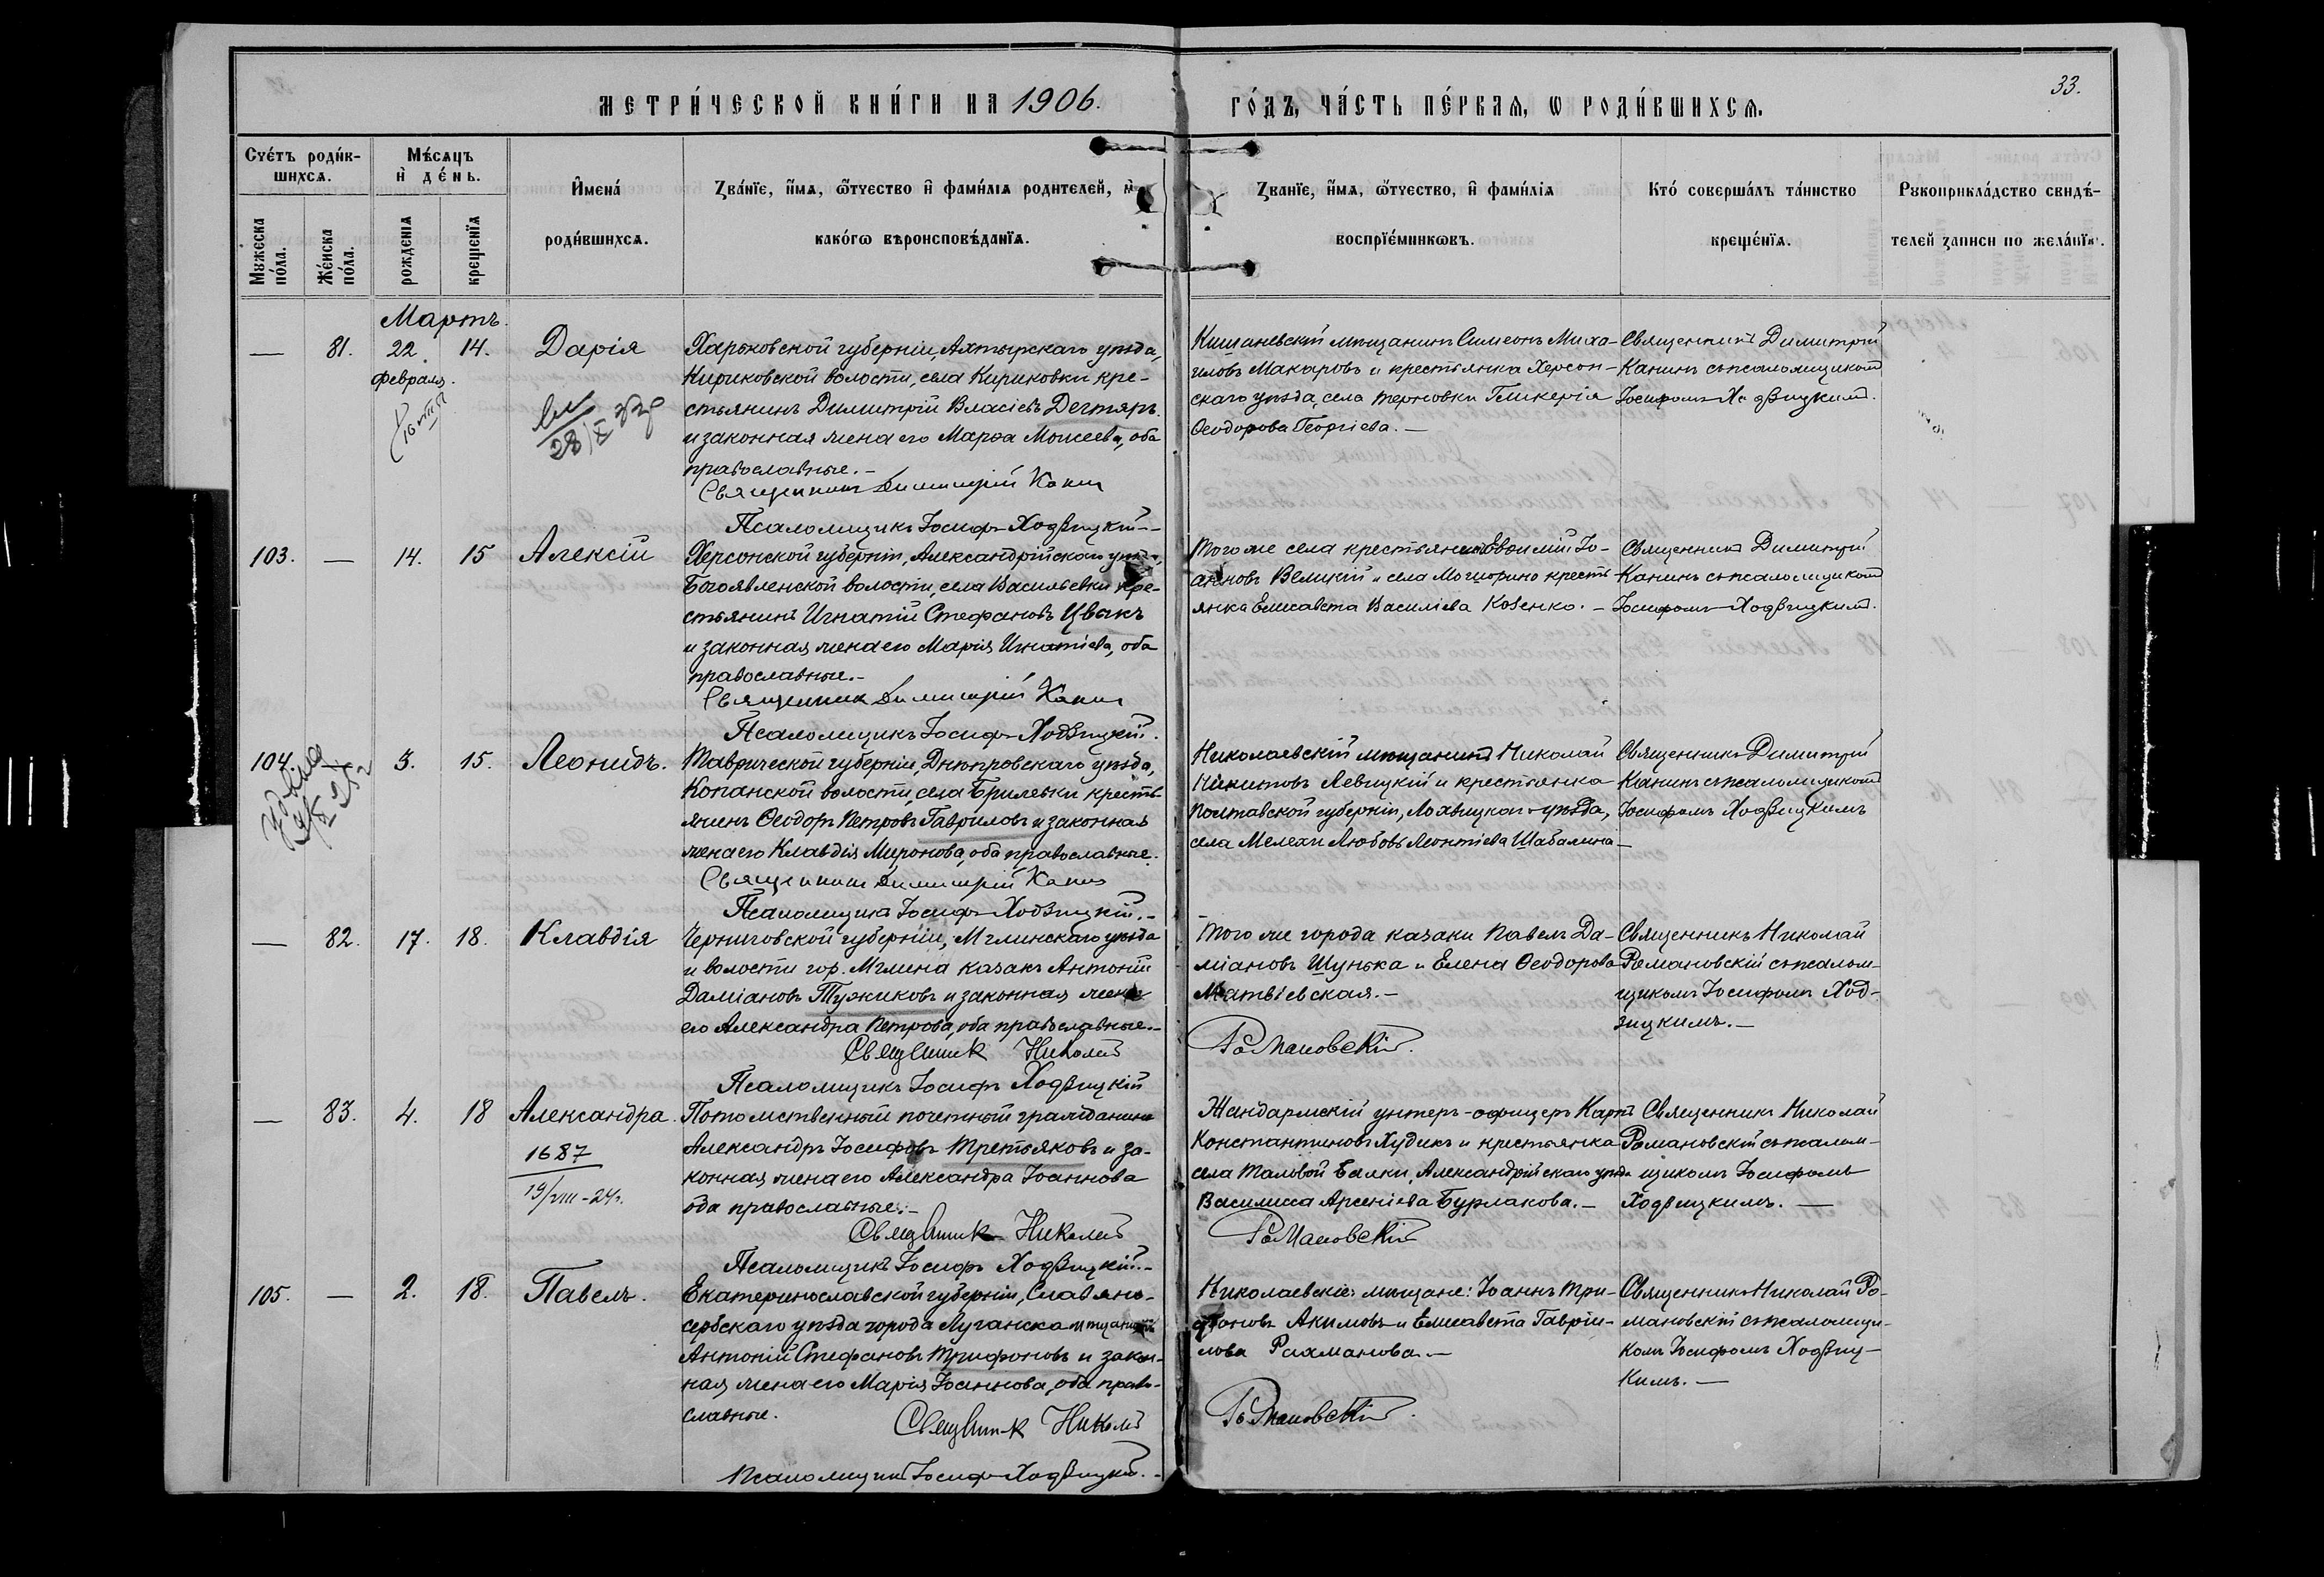 33.
МЕТРИ́ЧЕСКОЙ КНИ́ГИ НА 1906. ГО́ДЪ, ЧА́СТЬ ПЕ́РВАЯ, Ѡ РОДИ́ВШИХСЯ.
Счетъ роди́вшихся.
Мужеска по́ла.
Же́нска по́ла.
Мѣсяцъ и де́нь.
рожденія
крещенія
Имена́
роди́вшихся.
Зва́нїе, и҆́мя, ѻ҆́тчество и҆ фами́лїя родителей, и҆
како́гѡ вѣроисповѣ́данїя.
Званїе, и҆́мя, ѻ҆́тчество, и҆ фами́лїя
воспрїе́мникѡвъ.
Кто́ соверша́лъ та́инство
креще́нїя.
Рукоприкла́дство свидѣ́-
телей записи по жела́нїю.
Мартъ.
— 81. 22. 14. Дарія
Февраля.
28/X
Харьковской губерніи, Ахтырскаго уѣзда,
Кириковской волости, села Кириковки кре-
стьянинъ Димитрій Власіевъ Дегтярь
и законная жена его Марѳа Моисеева, оба
православные.-
Священникъ Димитрій Канин
Псаломщикъ Іосифъ Ходзицкій-
Кишиневскій мѣщанинъ Симеонъ Миха-
иловъ Макаровъ и крестьянка Херсон-
скаго уѣзда, села Терновки Гликерія
Ѳеодорова Георгіева.-
Священникъ Димитрій
Канинъ съ псаломщикомъ
Іосифомъ Ходзицкимъ.
103. — 14. 15 Алексій
Херсонской губерніи, Александрійскаго уѣзда,
Богоявленской волости, села Васильевки кре-
стьянинъ Игнатій Стефановъ Цвакъ
и законная жена его Марія Игнатіева, оба
православные.-
Священникъ Димитрій Канин
Псаломщикъ Іосифъ Ходзицкій.
Того же села крестьянинъ Евѳимій Іо-
анновъ Велицкій и села Могиорино кресть-
янка Елисавета Василіева Кобенко.-
Священникъ Димитрій
Канинъ съ псаломщикомъ
Іосифомъ Ходзицкимъ.
104. — 3. 15. Леонидъ.
Таврической губерніи, Днѣпровскаго уѣзда,
Копанской волости, села Брилевки кресть-
янинъ Ѳеодоръ Петровъ Гавриловъ и законная
жена его Клавдія Миронова, оба православные.
Священникъ Димитрій Канин
Псаломщикъ Іосифъ Ходзицкій.-
Николаевскій мѣщанинъ Николай
Никитовъ Левицкій и крестьянка
Полтавской губерніи, Лохвицкаго уѣзда,
села Мелехи Любовь Леонтіева Шабалина-
Священникъ Димитрій
Канинъ съ псаломщикомъ
Іосифомъ Ходзицкимъ
— 82. 17. 18. Клавдія
Черниговской губерніи, Мглинскаго уѣзда
и волости гор. Мглина казакъ Антоній
Даміановъ Тужиковъ и законная жена
его Александра Петрова, оба православные.-
Священникъ Николай
Псаломщикъ Іосифъ Ходзицкій
Того же города казаки Павелъ Да-
міановъ Шунька и Елена Ѳеодорова
Матвіевская.-
Романовскій.
Священникъ Николай
Романовскій съ псалом-
щикомъ Іосифомъ Ход-
зицкимъ.-
— 83. 4. 18 Александра.
1687
19/VIII-24г.
Потомственный почетный гражданинъ
Александръ Іосифовъ Третьяковъ и за-
конная жена его Александра Іоаннова
оба православные.-
Священникъ Николай
Псаломщикъ Іосифъ Ходзицкій.-
Жандармскій унтеръ-офицеръ Карпъ
Константиновъ Худикъ и крестьянка
села Таловой Балки, Александрійскаго уѣзда
Василисса Арсеніева Бурлакова.-
Романовскій
Священникъ Николай
Романовскій съ псалом-
щикомъ Іосифомъ
Ходзицкимъ.-
105. — 2. 18. Павелъ.
Екатеринославской губерніи, Славяно-
сербскаго уѣзда города Луганска мѣщанинъ
Антоній Стефановъ Трифоновъ и закон-
ная жена его Марія Іоаннова, оба право-
славные.
Священникъ Николай
Псаломщикъ Іосифъ Ходзицкій.-
Николаевскіе мѣщане: Іоаннъ Три-
фоновъ Акимовъ и Елисавета Гавріи-
лова Рахманова.-
Романовскій.
Священникъ Николай Ро-
мановскій съ псаломщи-
комъ Іосифомъ Ходзиц-
кимъ.-